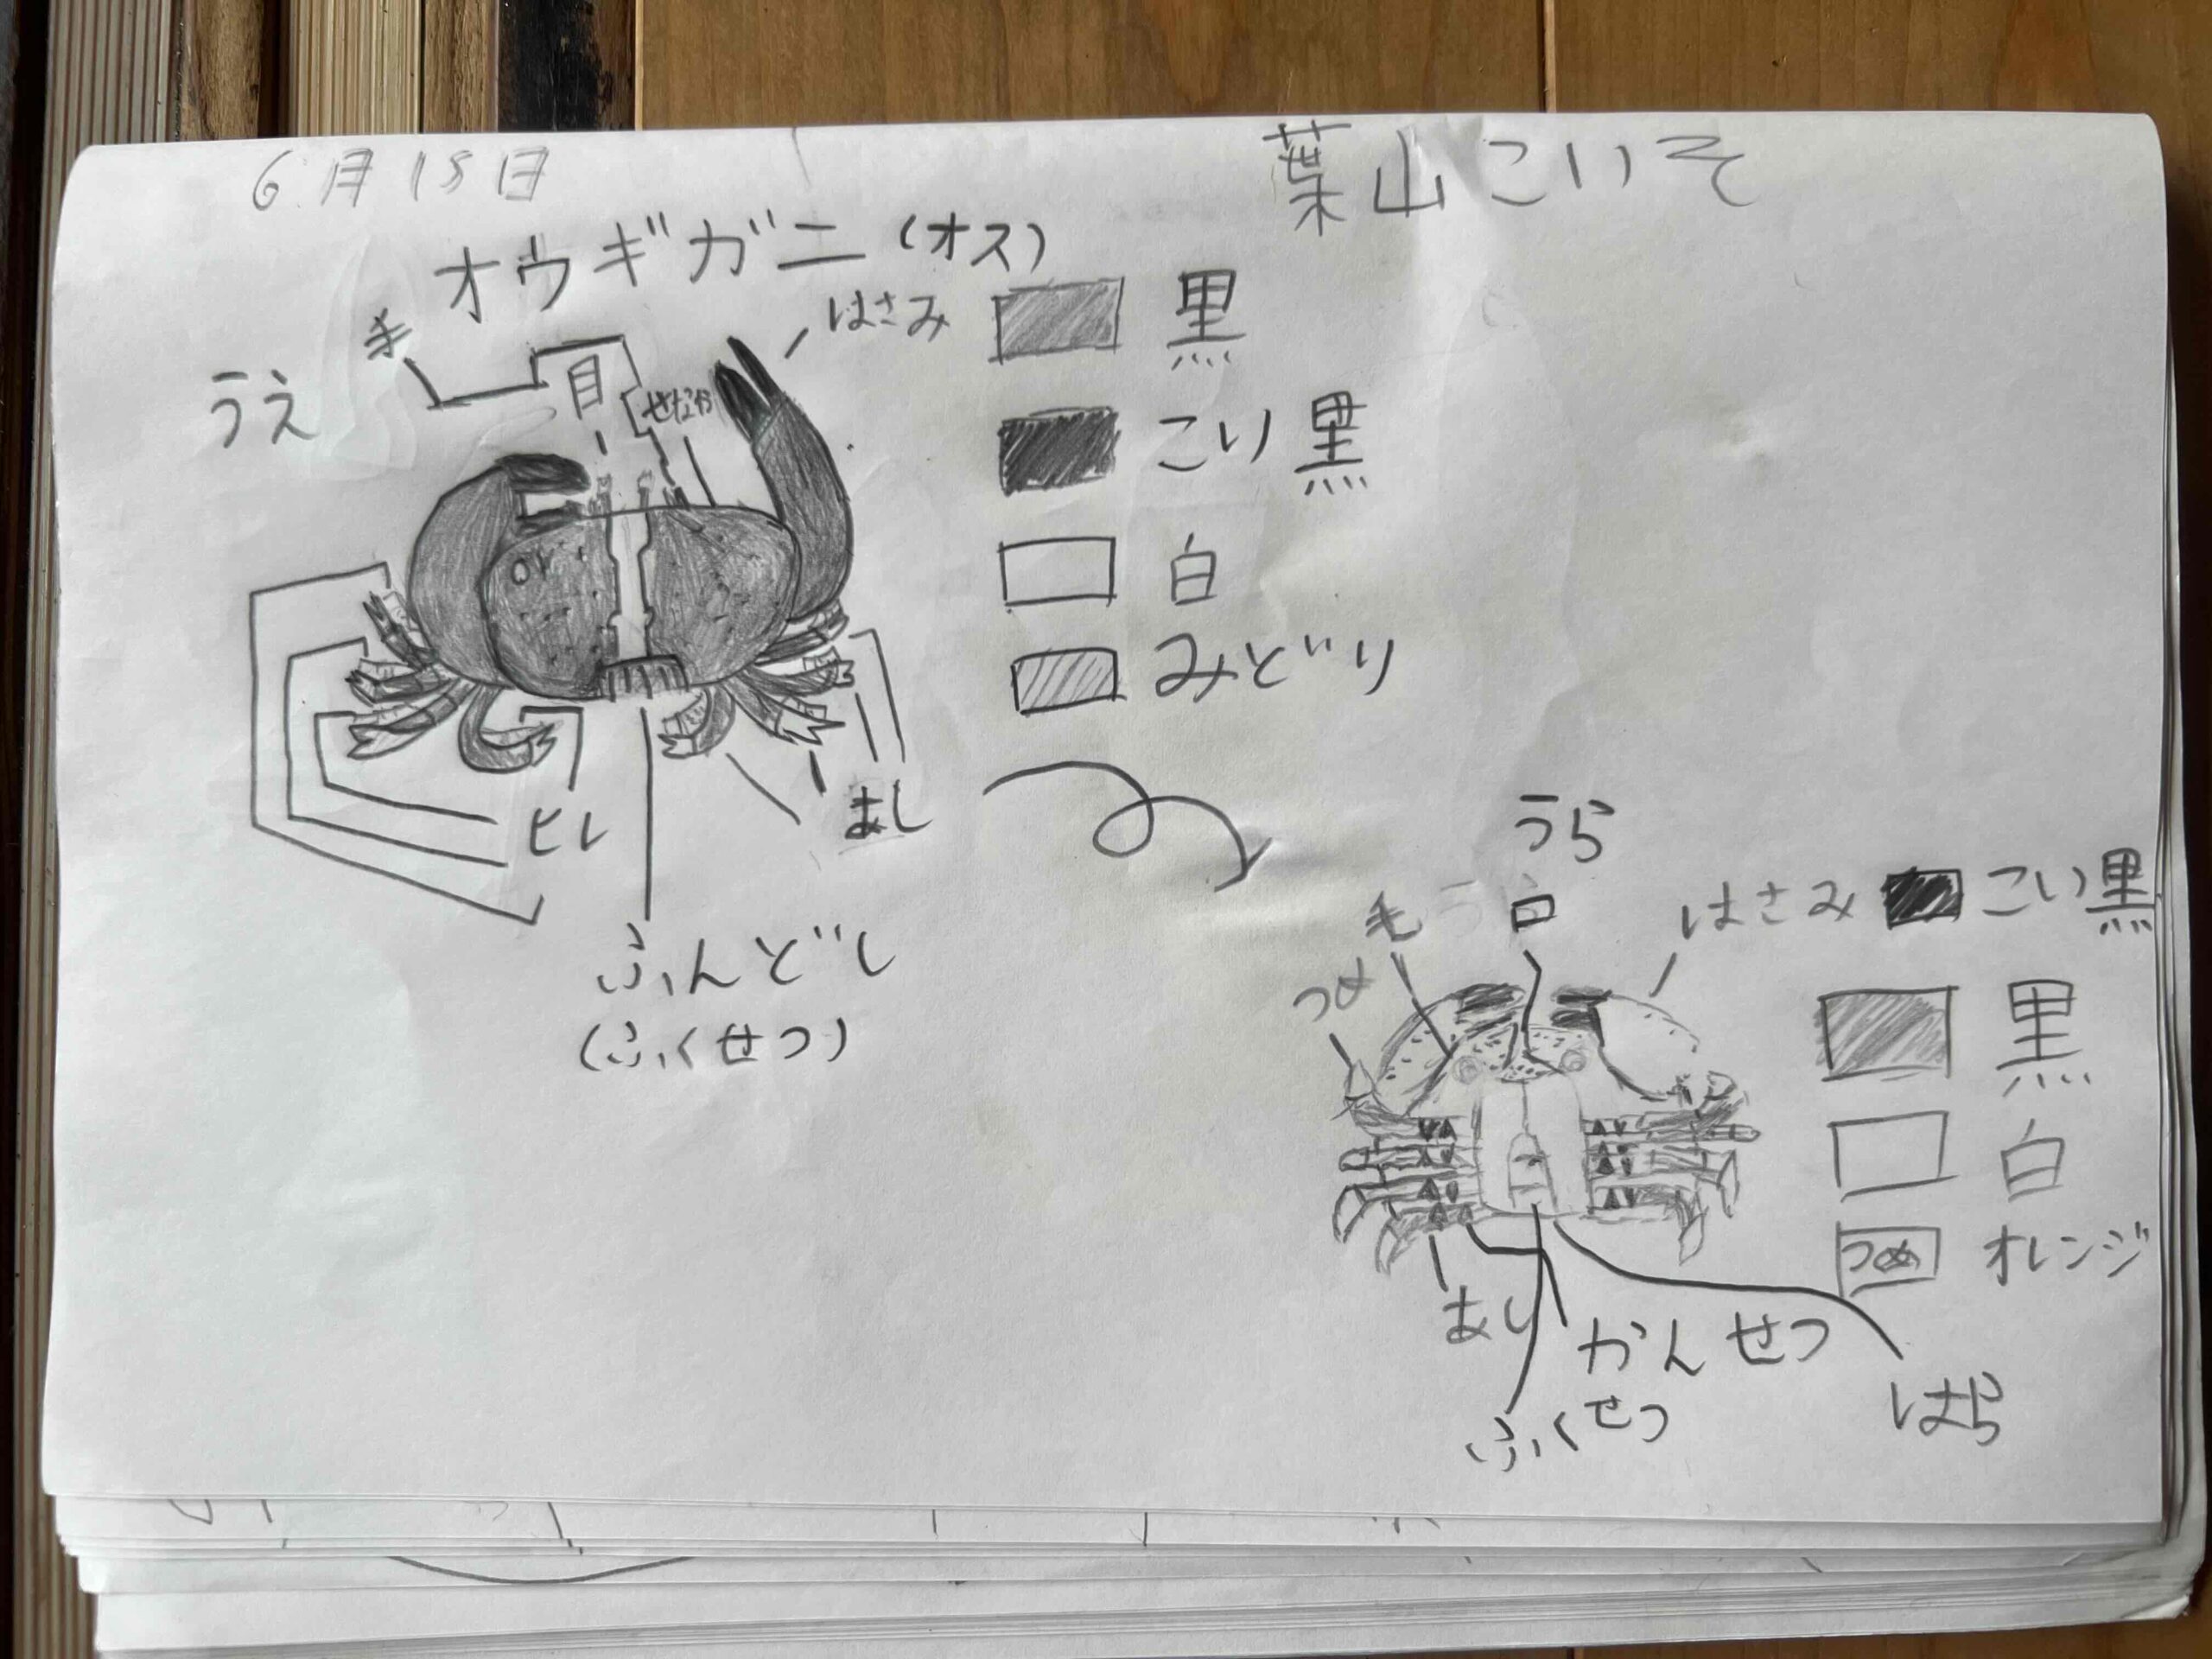 6月15日
葉山こいそ
オウギガニ(オス)
毛
はさみ
うえ
目
せなか
黒
こい黒
白
みどり
ヒレ
あし
ふんどし
(ふくせつ)
うら
毛
口
はさみ
こい黒
つめ
黒
白
つめ
オレンジ
あし
かんせつ
ふくせつ
はら